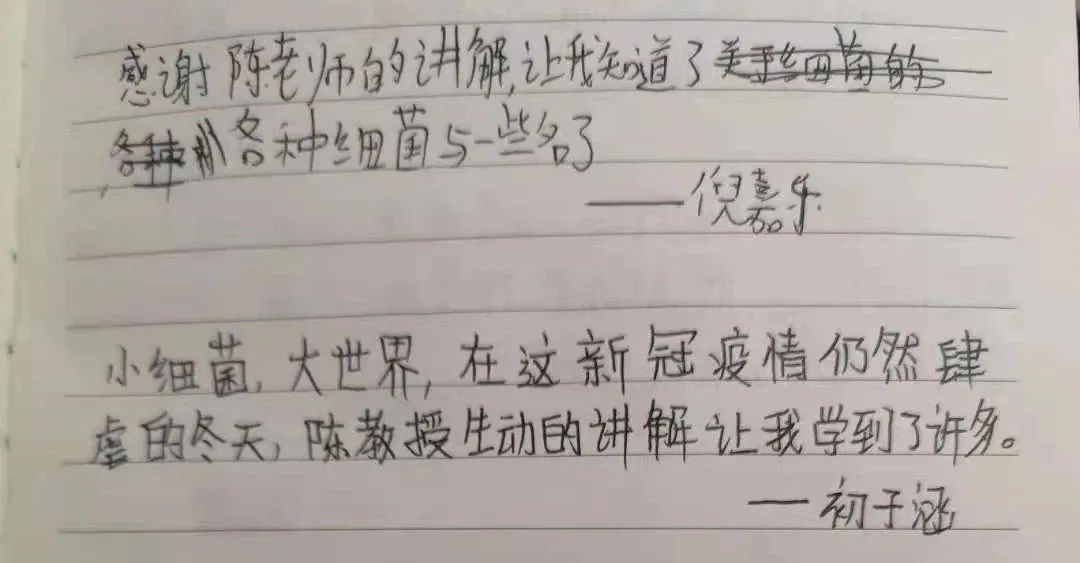 感谢陈老师的讲解,让我知道了关于细菌的
各种 各种细菌与一些名了
——倪嘉乐
小细菌,大世界,在这新冠疫情仍然肆
虐的冬天,陈教授生动的讲解让我学到了许多。
——初子涵